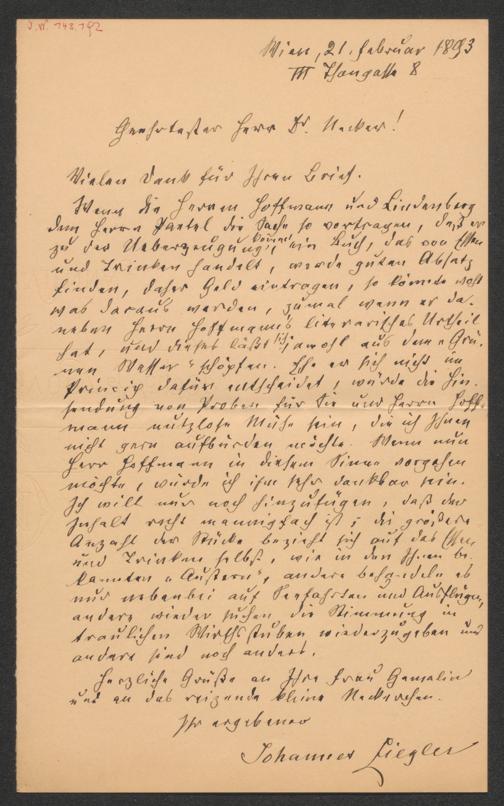 J.N. 148.192
Wien, 21. Februar 1893
III Thongasse 8
Geehrtester Herr Dr. Necker!
Vielen Dank für Ihren Brief.
Wenn die Herren Hoffmann und Lindenberg
dem Herrn Paetel die Sache so vortragen, daß er
zu der Ueberzeugung kommt, ein Buch, das von Essen
und Trinken handelt, werde guten Absatz
finden, daher Geld eintragen, so könnte wohl
was daraus werden, zumal wenn er da-
neben Herrn Hoffmann's literarisches Urtheil
hat, und dieses läßt sich ja wohl aus dem „Grü-
nen Wasser“ schöpfen. Ehe er sich nicht im
Princip dafür entscheidet, würde die Ein-
sendung von Proben für Sie und Herrn Hoff-
mann nutzlose Mühe sein, die ich Ihnen
nicht gern aufbürden möchte. Wenn nun
Herr Hoffmann in diesem Sinne vorgehen
möchte, würde ich ihm sehr dankbar sein.
Ich will nur noch hinzufügen, daß der
Inhalt recht mannigfach ist; die größere
Anzahl der Stücke bezieht sich auf das Essen
und Trinken selbst, wie in den Ihnen be-
kannten „Austern“, andere behandeln es
nur nebenbei auf Seefahrten und Ausflügen,
andere wieder suchen die Stimmung in
traulichen Wirthsstuben wiederzugeben und
andere sind noch anders.
Herzliche Grüße an Ihre Frau Gemalin
und an das reizende kleine Neckerchen.
Ihr ergebener
Johannes Ziegler